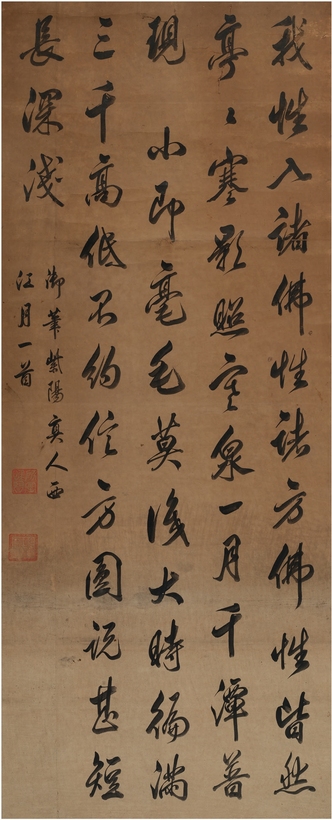 我性入諸佛性諸方佛性皆然
亭〻寒影照寒泉一月千潭普
現　小即毫毛莫識大時徧滿
三千高低不約信方圓說甚短
長深淺
御筆紫陽真人西
江月一首